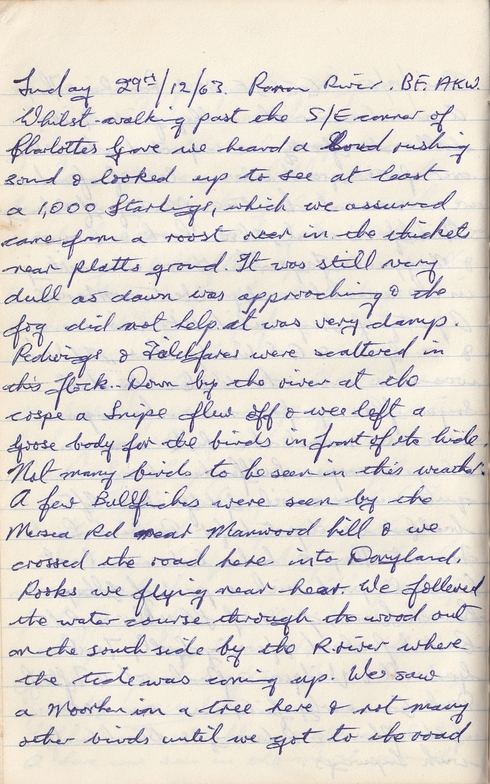 Sunday 29th/12/63. Roman River. BF. AKW.
Whilst walking past the S/E corner of
Charlottes Grove we heard a loud rushing
sond & looked up to see at least
a 1,000 Starlings, which we assumed
came from a roost near in the thickets
near Platts groud. It was still very
dull as dawn was approaching & the
fog did not help. it was very damp.
Redwings & Fieldfares were scattered in
this flock.. Down by the river at the
copse a Snipe flew off & wee left a
goose body for the birds in front of the hide.
Not many birds to be seen in this weather.
A few Bullfiches were seen by the
Mersea Rd near Manwood hill & we
crossed the road here into Donyland.
Rooks we flying near hear. We followed
the water course through the wood out
on the south side by the R.river where
the tide was coming up. We saw
a Moorhen in a tree here & not many
other birds until we got to the road